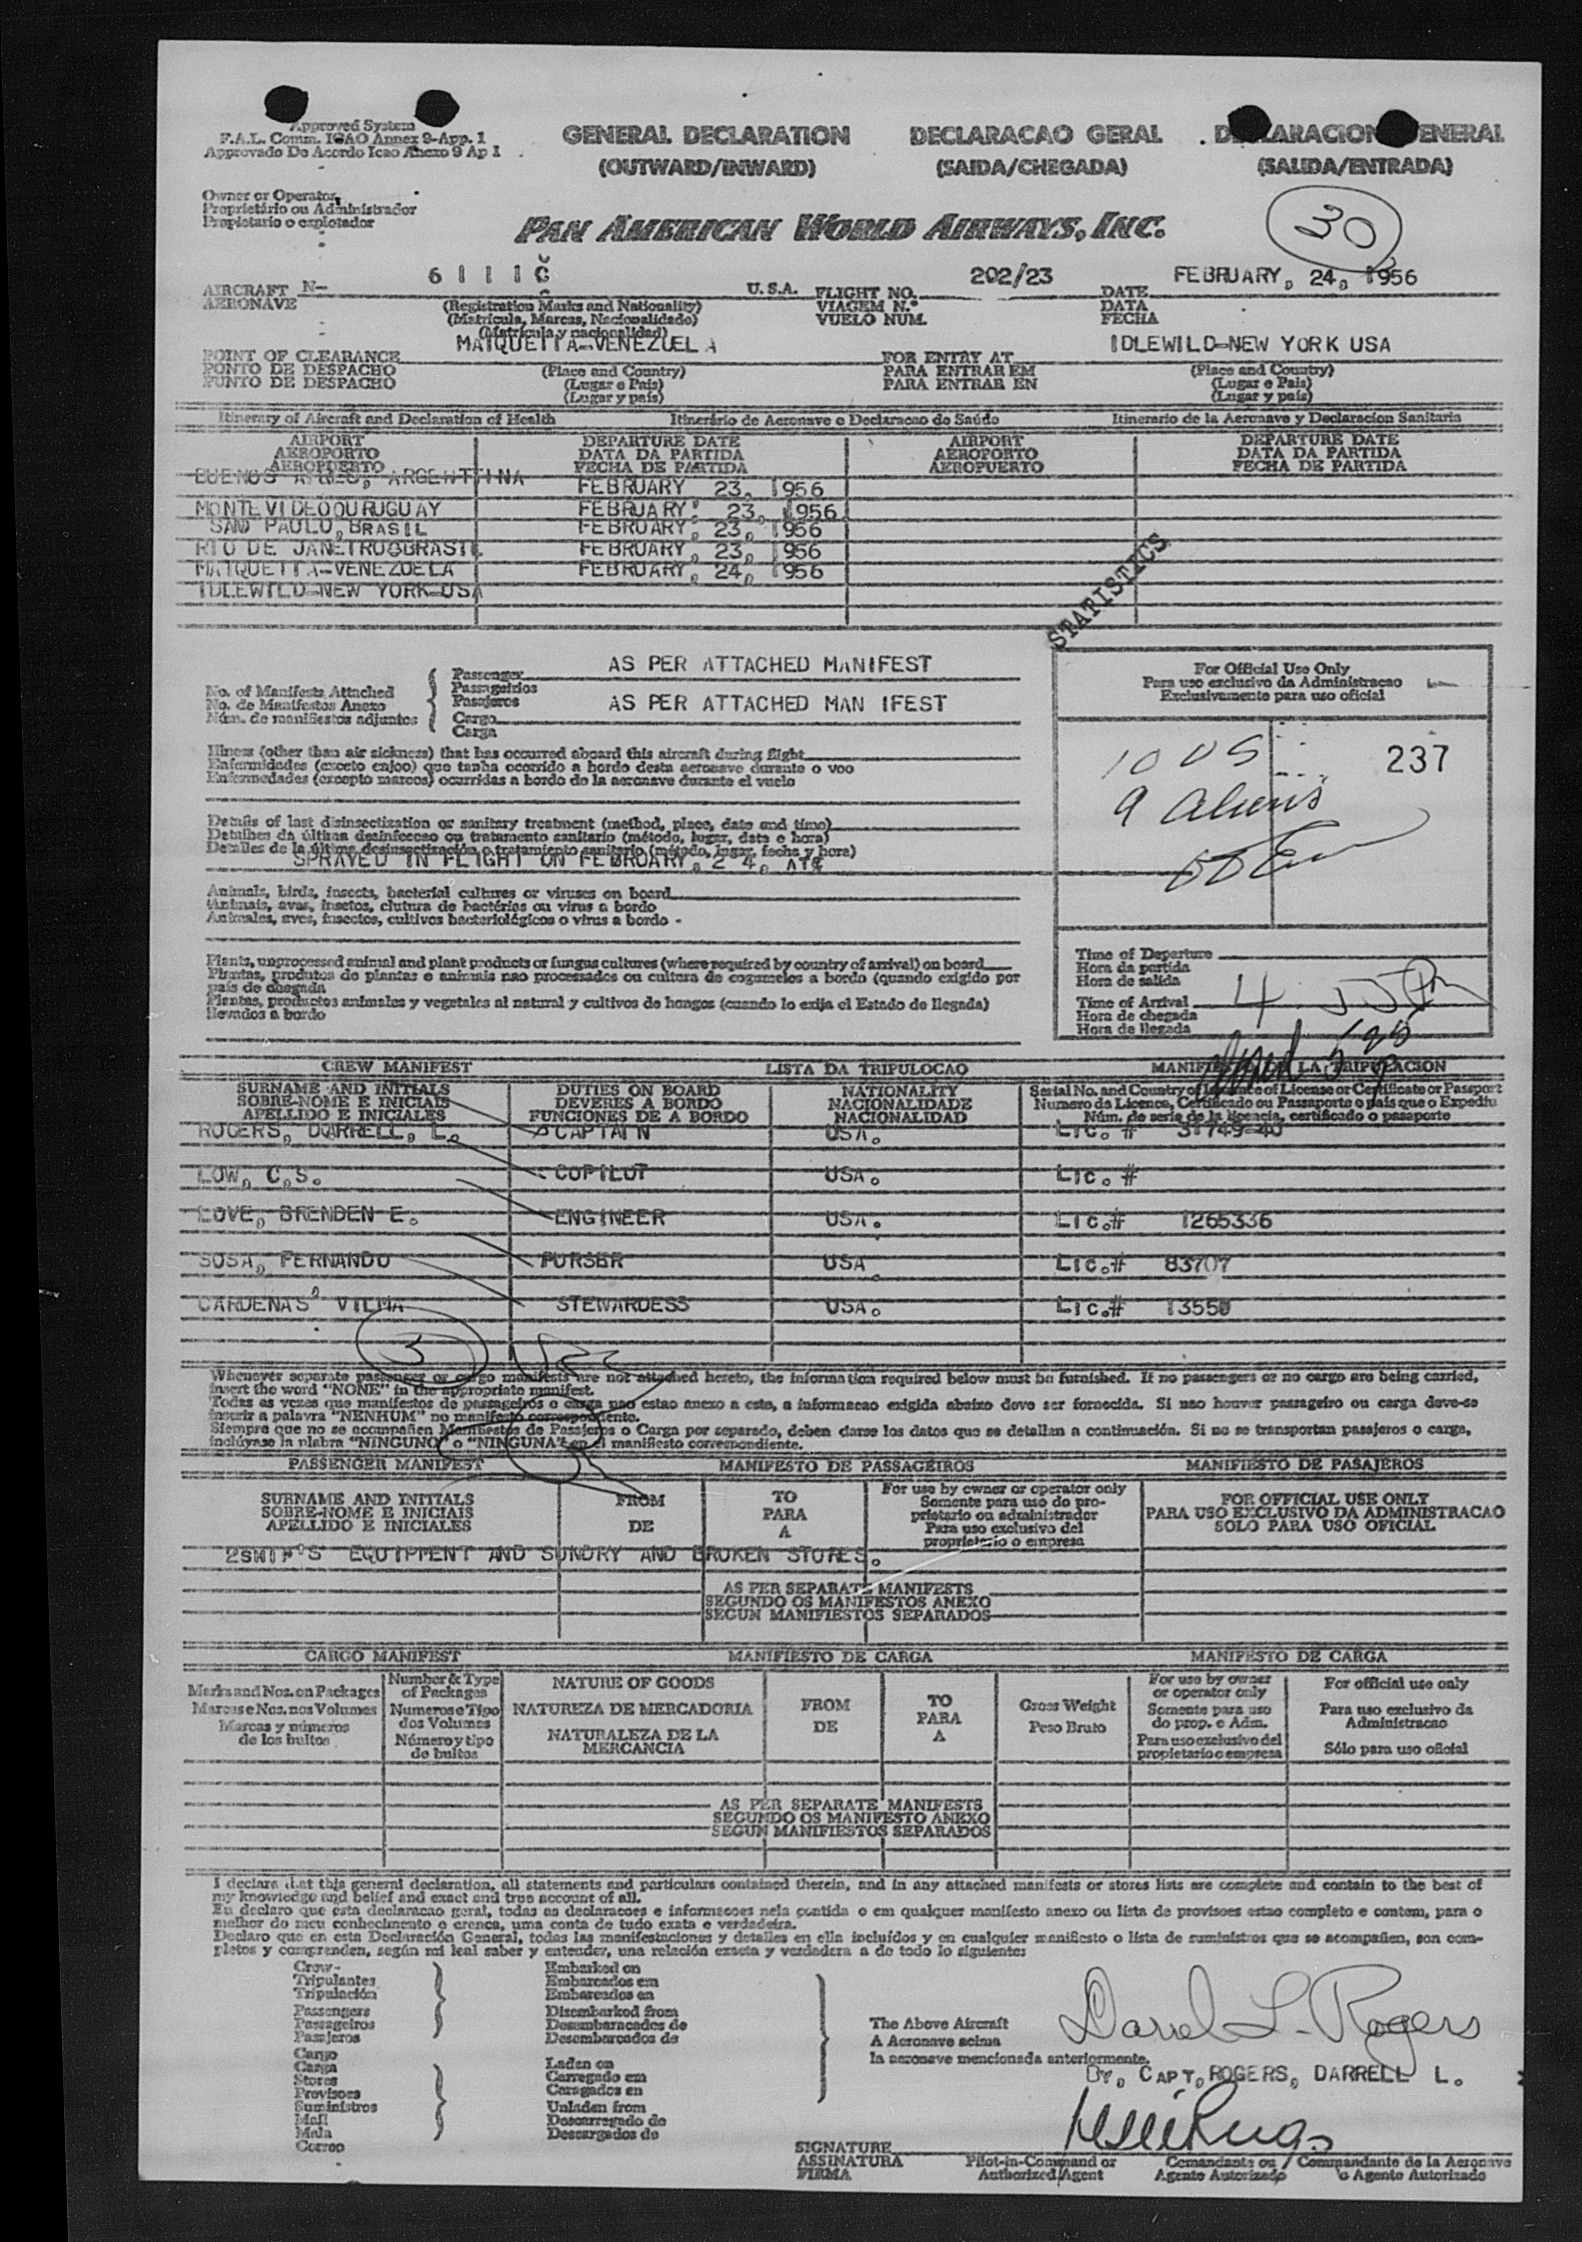 Approved System
F.A.L. Comm. ICAO Annex 9-App. 1
Approvado De Acordo Icao Anexo 9 Ap 1
GENERAL DECLARATION DECLARACAO GERAL DECLARACION GENERAL
(OUTWARD/INWARD) (SAIDA/CHEGADA) (SALIDA/ENTRADA)
Owner or Operator
Proprietário ou Administrador
Propietario o explotador
PAN AMERICAN WORLD AIRWAYS, INC.
30
AIRCRAFT N- 6111C U.S.A. FLIGHT NO. 202/23 DATE FEBRUARY, 24, 1956
AERONAVE (Registration Marks and Nationality) VIAGEM N.º DATA
(Matricula, Marcas, Nacionalidade) VUELO NUM. FECHA
(Matricula y nacionalidad)
POINT OF CLEARANCE MAIQUETIA-VENEZUELA FOR ENTRY AT IDLEWILD-NEW YORK USA
PONTO DE DESPACHO (Place and Country) PARA ENTRAR EM (Place and Country)
PUNTO DE DESPACHO (Lugar e Pais) PARA ENTRAR EN (Lugar e Pais)
(Lugar y país) (Lugar y país)
Itinerary of Aircraft and Declaration of Health Itinerário de Aeronave e Declaracao de Saúde Itinerario de la Aeronave y Declaracion Sanitaria
AIRPORT DEPARTURE DATE AIRPORT DEPARTURE DATE
AEROPORTO DATA DA PARTIDA AEROPORTO DATA DA PARTIDA
AEROPUERTO FECHA DE PARTIDA AEROPUERTO FECHA DE PARTIDA
BUENOS AIRES, ARGENTINA FEBRUARY 23, 1956
MONTEVIDEO,URUGUAY FEBRUARY, 23, 1956
SAO PAULO,BRASIL FEBRUARY, 23, 1956
RIO DE JANEIRO,BRASIL FEBRUARY, 23, 1956
MAIQUETIA-VENEZUELA FEBRUARY, 24, 1956
IDLEWILD-NEW YORK-USA
STATISTICS
No. of Manifests Attached
No. de Manifestos Anexo
Núm. de manifiestos adjuntos
Passenger AS PER ATTACHED MANIFEST
Passageirios
Pasajeros
Cargo AS PER ATTACHED MAN IFEST
Carga
For Official Use Only
Para uso exclusivo da Administracao
Exclusivamente para uso oficial
10 US
237
9 Aliens
Illness (other than air sickness) that has occurred aboard this aircraft during flight
Enfermidades (exceto enjoo) que tanha ocorrido a bordo desta aeronave durante o voo
Enfermedades (excepto mareos) ocurridas a bordo de la aeronave durante el vuelo
Details of last disinsectization or sanitary treatment (method, place, date and time)
Detalhes da última desinfeccao ou tratamento sanitario (método, lugar, data e hora)
Detalles de la última desinsectización o tratamiento sanitario (método, lugar, fecha y hora)
SPRAYED IN FLIGHT ON FEBRUARY, 2 4,
Animals, birds, insects, bacterial cultures or viruses on board
Animais, avas, insetos, clutura de bactérias ou virus a bordo
Animales, aves, insectos, cultivos bacteriológicos o virus a bordo -
Plants, unprocessed animal and plant products or fungus cultures (where required by country of arrival) on board
Plantas, produtos de plantas e animais nao processados ou cultura de cogumelos a bordo (quando exigido por
pais de chegada
Plantas, productos animales y vegetales al natural y cultivos de hongos (cuando lo exija el Estado de llegada)
llevados a bordo
Time of Departure
Hora da partida
Hora de salida
Time of Arrival 4
Hora de chegada
Hora de llegada
CREW MANIFEST LISTA DA TRIPULOCAO MANIFIESTO DE LA TRIPULACION
SURNAME AND INITIALS DUTIES ON BOARD NATIONALITY Serial No. and Country of Issuance of License or Certificate or Passport
SOBRE-NOME E INICIAIS DEVERES A BORDO NACIONALIDADE Numero da Licenca, Certificado ou Passaporte o pais que o Expediu
APELLIDO E INICIALES FUNCIONES DE A BORDO NACIONALIDAD Núm. de serie de la licencia, certificado o pasaporte
ROGERS, DARRELL, L. CAPTAIN USA. LIC. # 31749-40
LOW, C,S. COPILOT USA. LIC. #
LOVE, BRENDEN E. ENGINEER USA. LIC.# 1265336
SOSA, FERNANDO PURSER USA. LIC.# 83707
CARDENAS, VILMA STEWARDESS USA. LIC.# 13550
5
Whenever separate passenger or cargo manifests are not attached hereto, the information required below must be furnished. If no passengers or no cargo are being carried,
insert the word "NONE" in the appropriate manifest.
Todas as vezes que manifestos de passageiros o carga nao estao anexo a este, a informacao exigida abaixo deve ser fornecida. Si nao houver passageiro ou carga deve-se
inserir a palavra "NENHUM" no manifesto correspondente.
Siempre que no se acompañen Manifiestos de Pasajeros o Carga por separado, deben darse los datos que se detallan a continuación. Si no se transportan pasajeros o carga,
inclúyase la plabra "NINGUNO" o "NINGUNA" en el manifiesto correspondiente.
PASSENGER MANIFEST MANIFESTO DE PASSAGEIROS MANIFIESTO DE PASAJEROS
SURNAME AND INITIALS FROM TO For use by owner or operator only FOR OFFICIAL USE ONLY
SOBRE-NOME E INICIAIS DE PARA Somente para uso do pro- PARA USO EXCLUSIVO DA ADMINISTRACAO
APELLIDO E INICIALES A prietario ou administrador SOLO PARA USO OFICIAL
Para uso exclusivo del
proprietario o empresa
2SHIP'S EQUIPMENT AND SUNDRY AND BROKEN STORES.
AS PER SEPARATE MANIFESTS
SEGUNDO OS MANIFESTOS ANEXO
SEGUN MANIFIESTOS SEPARADOS
CARGO MANIFEST MANIFIESTO DE CARGA MANIFESTO DE CARGA
Marks and Nos. on Packages Number & Type of Packages NATURE OF GOODS FROM TO Gross Weight For use by owner or operator only For official use only
Marcas e Nos. nos Volumes Numeros e Tipo dos Volumes NATUREZA DE MERCADORIA DE PARA Peso Bruto Somente para uso do prop. e Adm. Para uso exclusivo da Administracao
Marcas y números de los bultos Número y tipo de bultos NATURALEZA DE LA MERCANCIA A Para uso exclusivo del propietario o empresa Sólo para uso oficial
AS PER SEPARATE MANIFESTS
SEGUNDO OS MANIFESTO ANEXO
SEGUN MANIFIESTOS SEPARADOS
I declare that this general declaration, all statements and particulars contained therein, and in any attached manifests or stores lists are complete and contain to the best of
my knowledge and belief and exact and true account of all.
Eu declaro que esta declaracao geral, todas as declaracoes e informacoes nela contida o em qualquer manifesto anexo ou lista de provisoes estao completo e contem, para o
melhor do meu conhecimento e crenca, uma conta de tudo exata e verdadeira.
Declaro que en esta Declaración General, todas las manifestaciones y detalles en ella incluídos y en cualquier manifiesto o lista de suministros que se acompañen, son com-
pletos y comprenden, según mi leal saber y entender, una relación exacta y verdadera a de todo lo siguiente:
Crew- Embarked on
Tripulantes Embarcados em
Tripulación Embarcados en
Passengers Disembarked from
Passageiros Desembaracados de
Pasajeros Desembarcados de
Cargo
Carga Laden on
Stores Carregado em
Provisoes Caragados en
Suministros Unladen from
Mail Descarregado de
Mala Descargados de
Correo
The Above Aircraft
A Aeronave acima
la aeronave mencionada anteriormente.
Darrel L. Rogers
BY, CAPT,ROGERS, DARRELL L.
SIGNATURE Pilot-in-Command or Comandante ou Commandante de la Aeronave
ASSINATURA Authorized Agent Agente Autorizado o Agente Autorizado
FIRMA